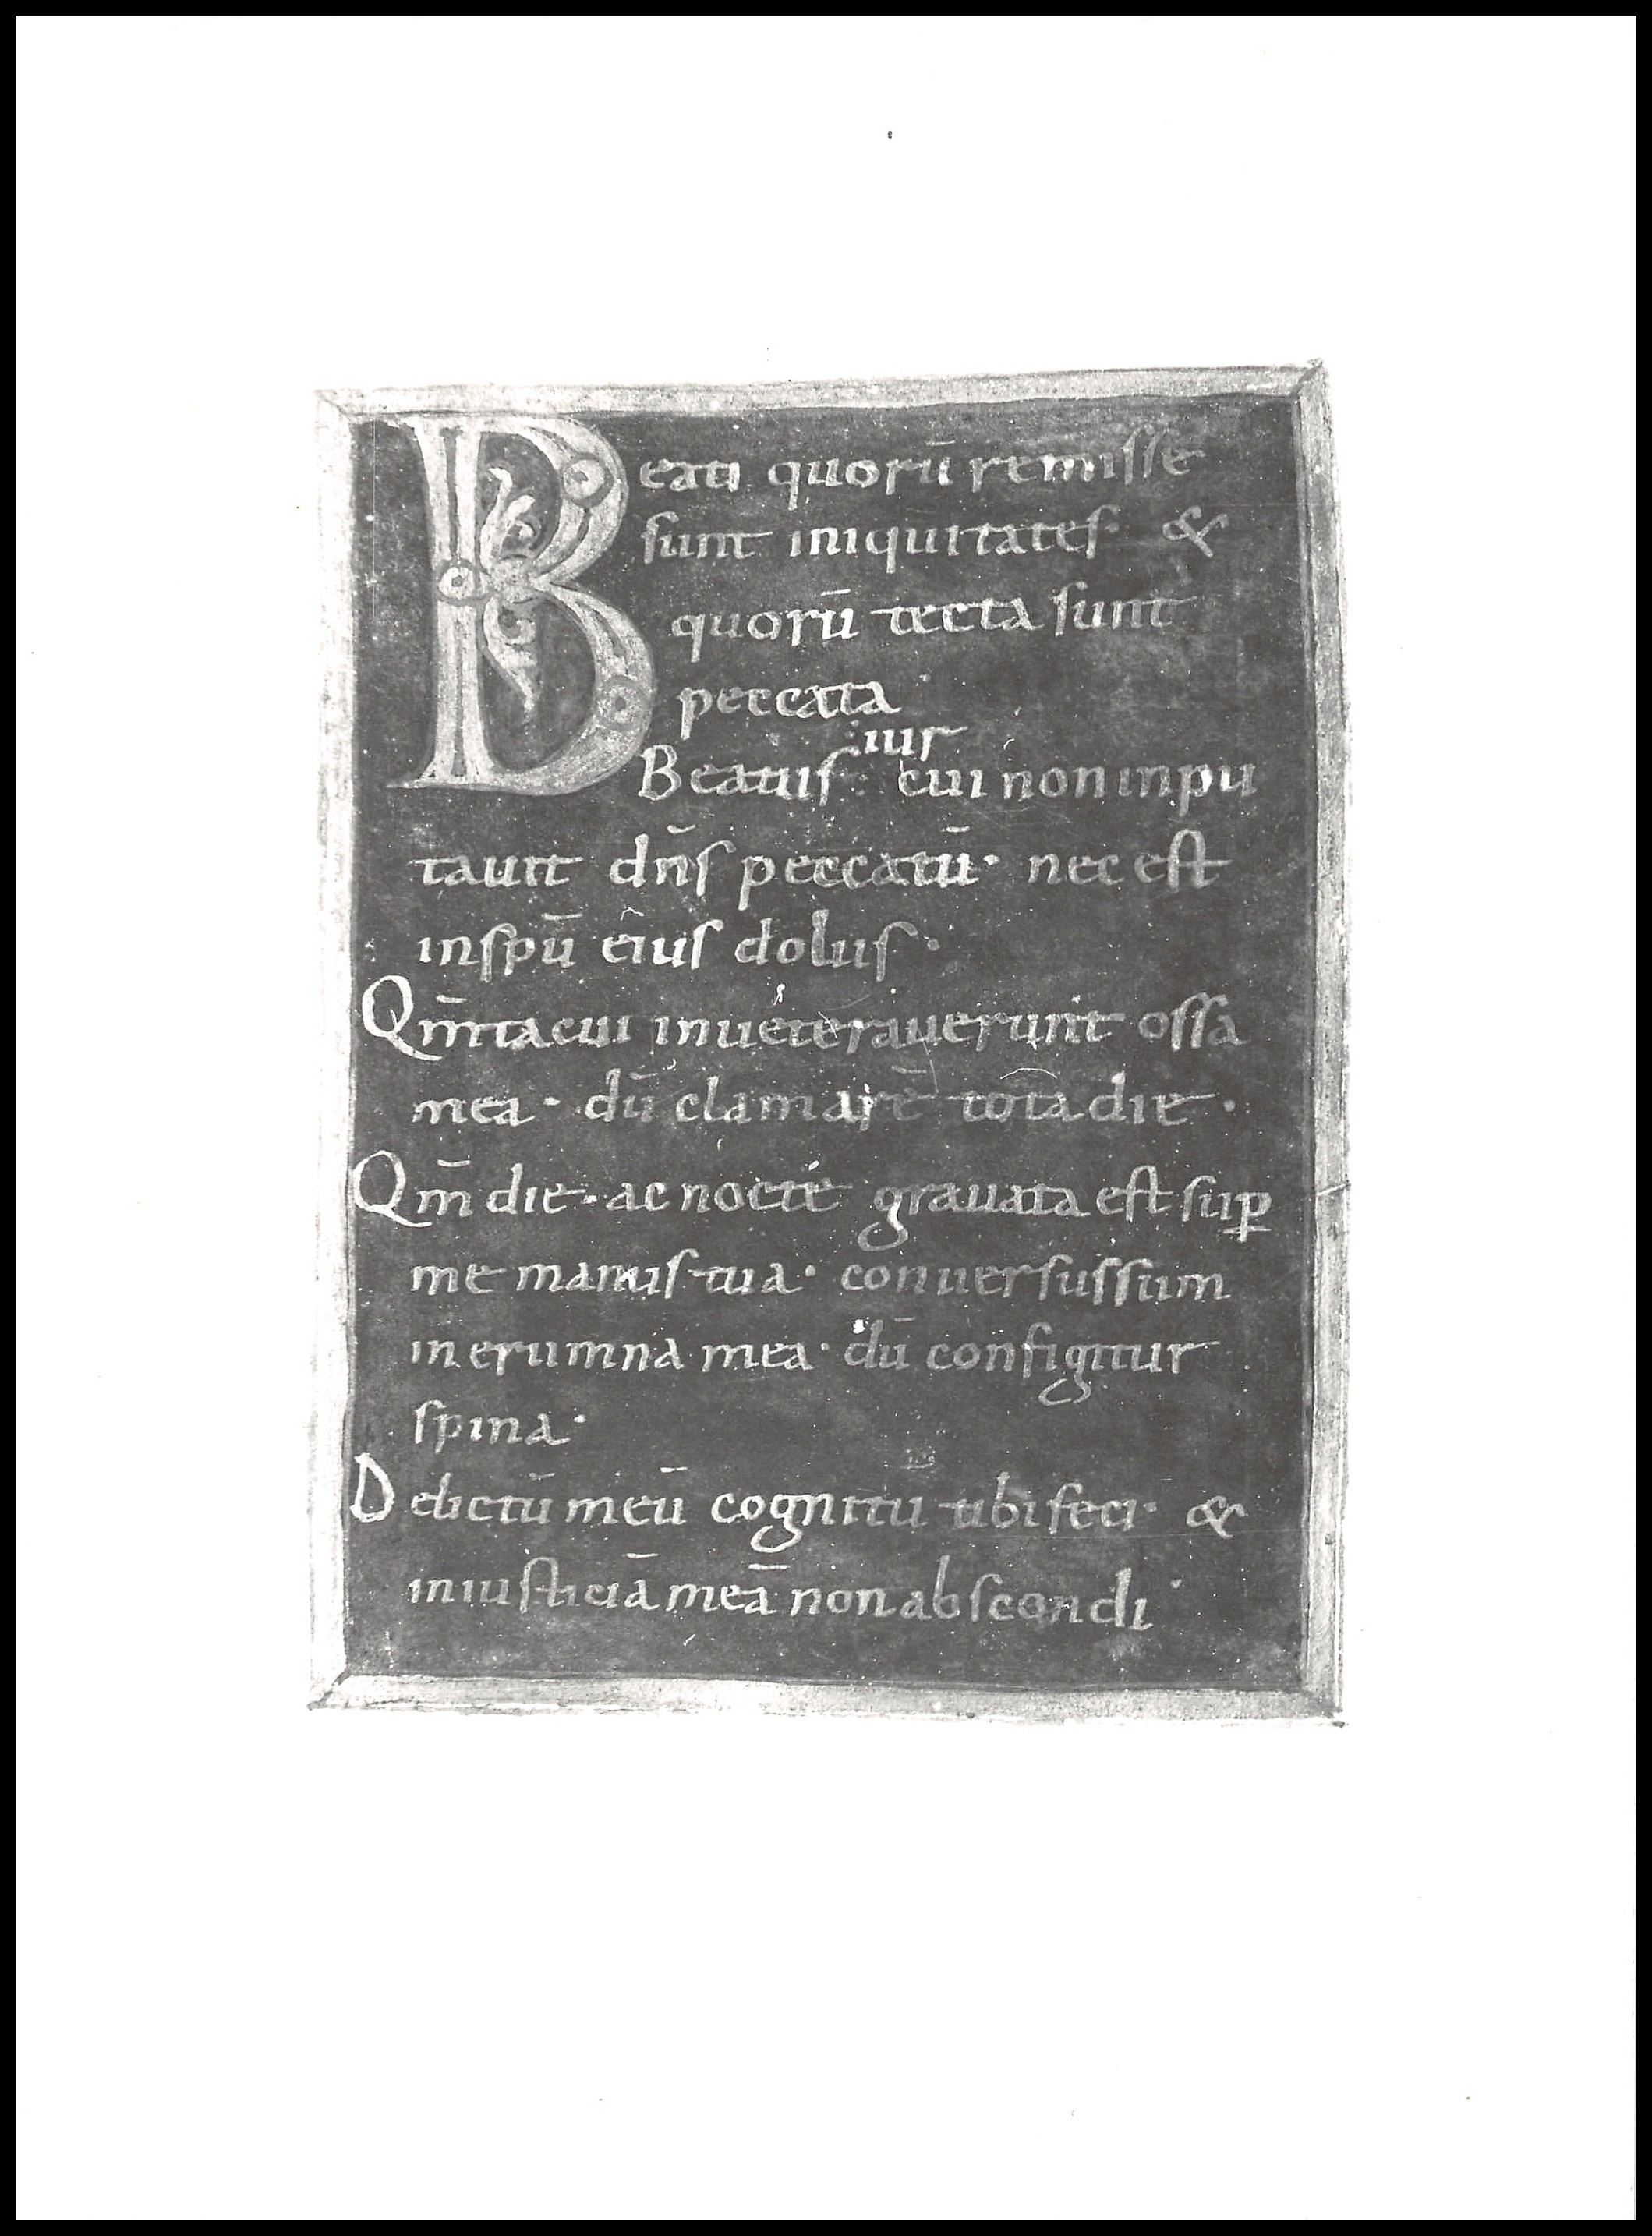 Beati quorū remisse
sunt iniquitates· &
quorū tecta sunt
peccata
uir
Beatus cui non inpu
tauit dn̄s peccatū· nec est
in spū eius dolus·
Qm̄ tacui inueterauerunt ossa
mea· dū clamarē tota die·
Qm̄ die· ac nocte grauata est sup̱
me manus tua· conuersus sum
in erumna mea· dū configitur
spina·
Delictū meū cognitū tibi feci· &
iniusticiā meā non abscondi·